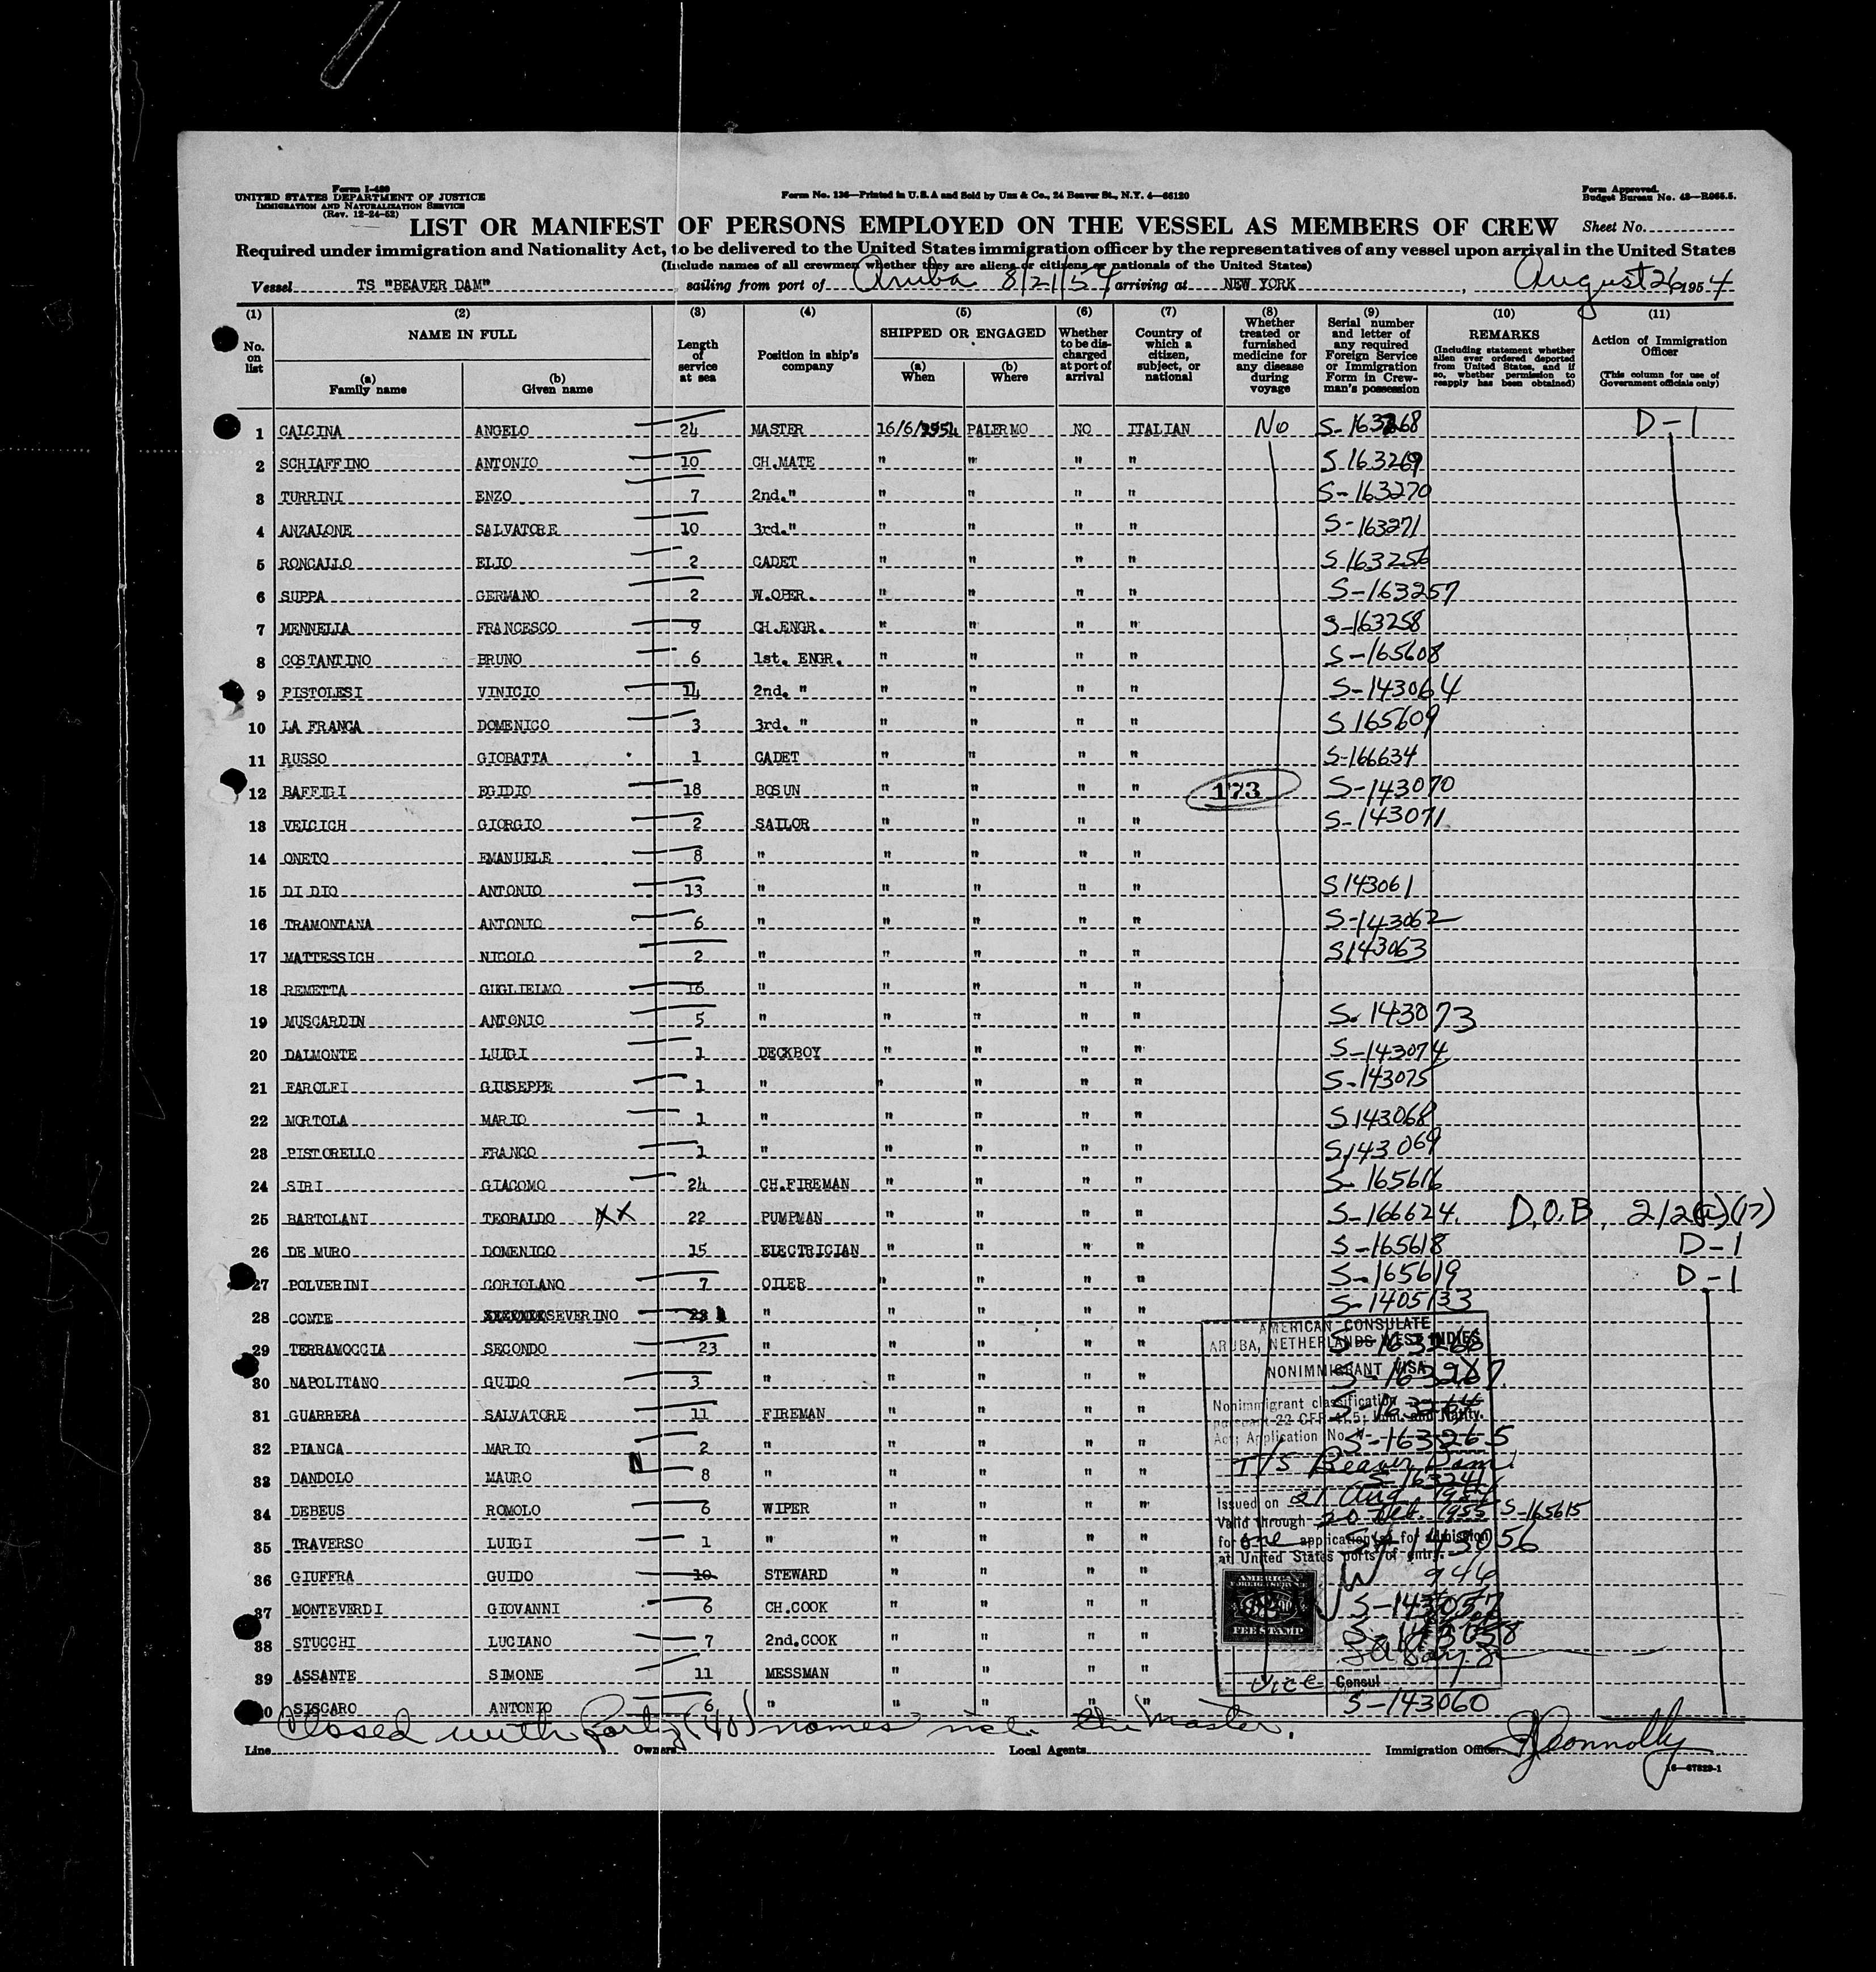 Form I-489
UNITED STATES DEPARTMENT OF JUSTICE
IMMIGRATION AND NATURALIZATION SERVICE
(Rev. 12-24-52)
Form No. 136—Printed in U.S.A and Sold by Unz & Co., 24 Beaver St., N.Y. 4—66120
Form Approved.
Budget Bureau No. 43—R065.5.
LIST OR MANIFEST OF PERSONS EMPLOYED ON THE VESSEL AS MEMBERS OF CREW Sheet No.
Required under immigration and Nationality Act, to be delivered to the United States immigration officer by the representatives of any vessel upon arrival in the United States
(Include names of all crewmen whether they are aliens or citizens or nationals of the United States)
Vessel TS "BEAVER DAM" sailing from port of Aruba 8/21/54 arriving at NEW YORK, August 26 1954
(1) No. on list
(2) NAME IN FULL (a) Family name (b) Given name
(3) Length of service at sea
(4) Position in ship's company
(5) SHIPPED OR ENGAGED (a) When (b) Where
(6) Whether to be discharged at port of arrival
(7) Country of which a citizen, subject, or national
(8) Whether treated or furnished medicine for any disease during voyage
(9) Serial number and letter of any required Foreign Service or Immigration Form in Crewman's possession
(10) REMARKS (Including statement whether alien ever ordered deported from United States, and if so, whether permission to reapply has been obtained)
(11) Action of Immigration Officer (This column for use of Government officials only)
1 CALCINA ANGELO 24 MASTER 16/6/1954 PALERMO NO ITALIAN No S-163268 D-1
2 SCHIAFFINO ANTONIO 10 CH.MATE " " " " S 163269
3 TURRINI ENZO 7 2nd." " " " " S-163270
4 ANZALONE SALVATORE 10 3rd." " " " " S-163271
5 RONCALLO ELIO 2 CADET " " " " S 163256
6 SUPPA GERMANO 2 W.OPER. " " " " S-163257
7 MENNELLA FRANCESCO 9 CH.ENGR. " " " " S-163258
8 COSTANTINO BRUNO 6 1st. ENGR. " " " " S-165608
9 PISTOLESI VINICIO 14 2nd. " " " " " S-143064
10 LA FRANCA DOMENICO 3 3rd. " " " " " S 165609
11 RUSSO GIOBATTA 1 CADET " " " " S-166634
12 BAFFIGI EGIDIO 18 BOSUN " " " " 173 S-143070
13 VELCICH GIORGIO 2 SAILOR " " " " S-143071
14 ONETO EMANUELE 8 " " " " "
15 DI DIO ANTONIO 13 " " " " " S143061
16 TRAMONTANA ANTONIO 6 " " " " " S-143062
17 MATTESSICH NICOLO 2 " " " " " S143063
18 REMETTA GUGLIELMO 16 " " " " "
19 MUSCARDIN ANTONIO 5 " " " " " S. 143073
20 DALMONTE LUIGI 1 DECKBOY " " " " S-143074
21 FAROLFI GIUSEPPE 1 " " " " " S-143075
22 MORTOLA MARIO 1 " " " " " S 143068
23 PISTORELLO FRANCO 1 " " " " " S.143069
24 SIRI GIACOMO 24 CH.FIREMAN " " " " S. 165616
25 BARTOLANI TEOBALDO XX 22 PUMPMAN " " " " S-166624. D.O.B. 212(a)(17)
26 DE MURO DOMENICO 15 ELECTRICIAN " " " " S-165618 D-1
27 POLVERINI CORIOLANO 7 OILER " " " " S-165619 D-1
28 CONTE SEVERINO " " " " " S-1405133
29 TERRAMOCCIA SECONDO 23 " " " " " S-163266
30 NAPOLITANO GUIDO 3 " " " " " S-163267
31 GUARRERA SALVATORE 11 FIREMAN " " " " S-163264
32 PIANCA MARIO 2 " " " " " S-163265
33 DANDOLO MAURO N 8 " " " " " S-163241
34 DEBEUS ROMOLO 6 WIPER " " " " S-165615
35 TRAVERSO LUIGI 1 " " " " " S-143056
36 GIUFFRA GUIDO 10 STEWARD " " " " 946
37 MONTEVERDI GIOVANNI 6 CH.COOK " " " " S-143057
38 STUCCHI LUCIANO 7 2nd.COOK " " " " S-143058
39 ASSANTE SIMONE 11 MESSMAN " " " "
40 SISCARO ANTONIO 6 " " " " " S-143060
AMERICAN CONSULATE
ARUBA, NETHERLANDS WEST INDIES
NONIMMIGRANT VISA
Nonimmigrant classification
pursuant 22 CFR 41.5; Imm. and Natity.
Act; Application No. V-
T/S Beaver Dam
Issued on 21 Aug 1954
Valid through 20 1955
for one application(s) for admission
at United States ports of entry.
AMERICAN
FOREIGN SERVICE
FEE STAMP
Vice Consul
Closed with Forty (40) names incl. the Master.
Line Owners Local Agents Immigration Officer J Connolly
16—67829-1